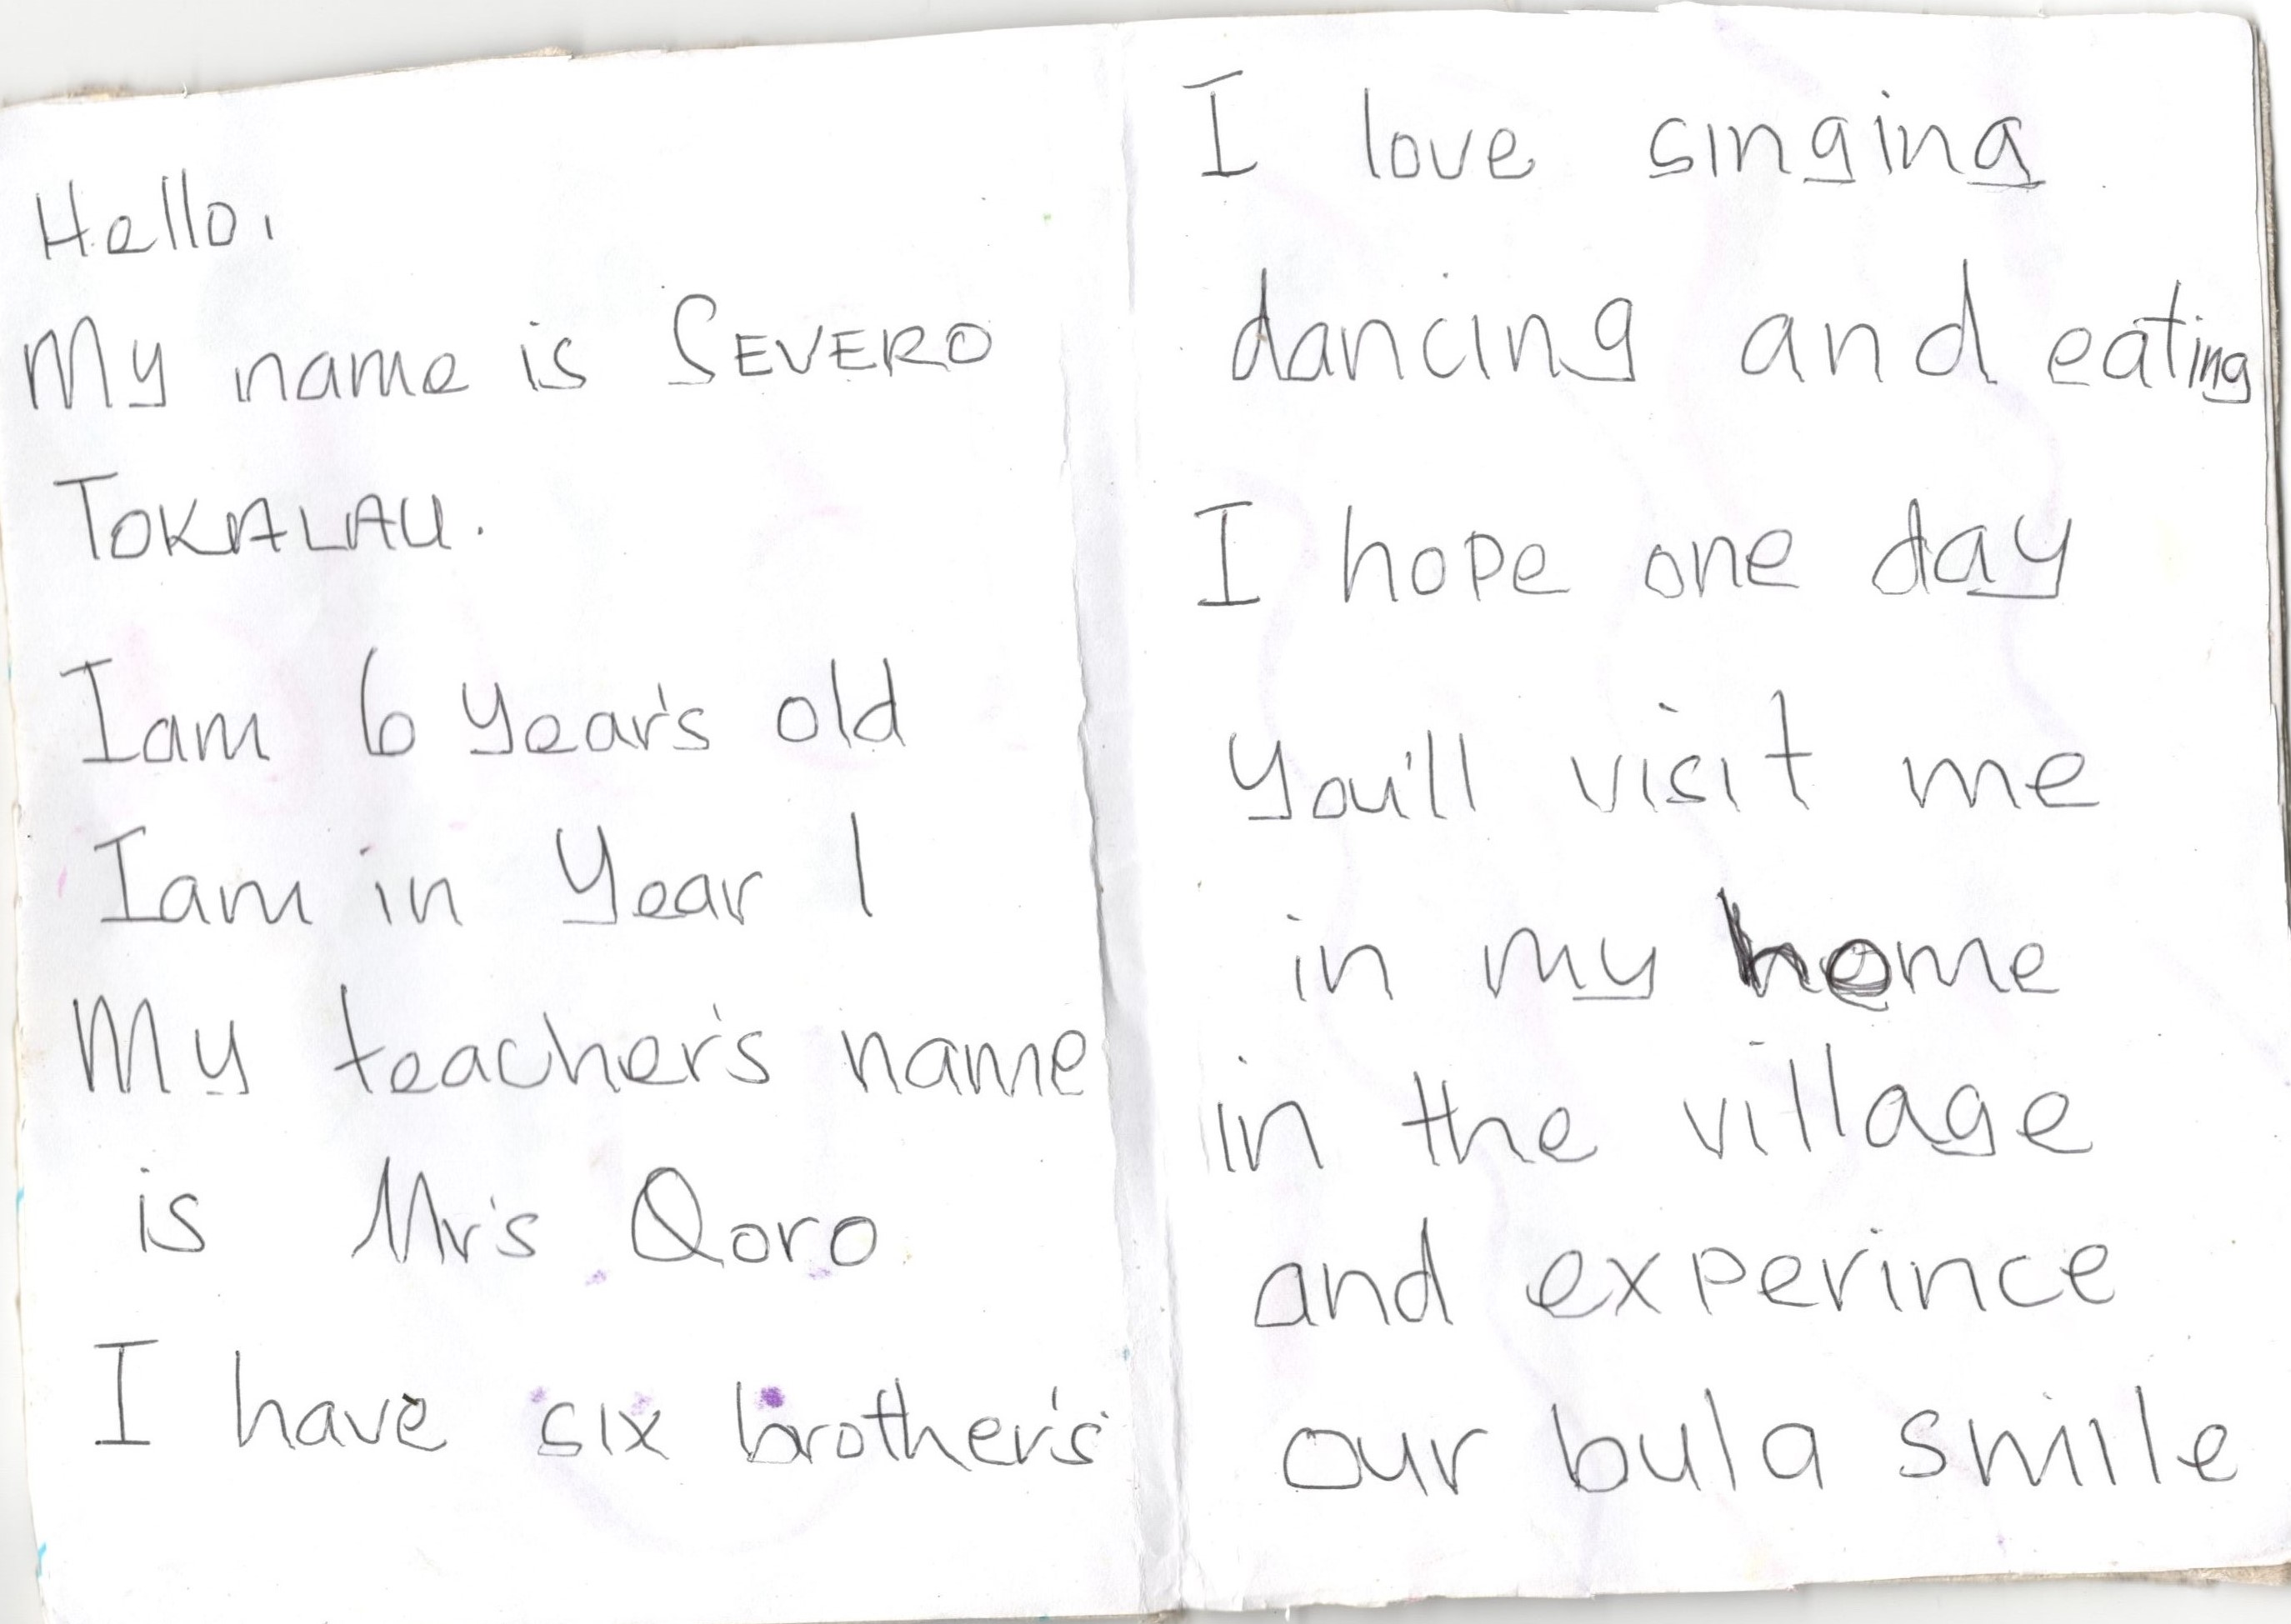 Hello,
My name is SEVERO
TOKALAU.
Iam 6 Year's old
Iam in Year 1
My teacher's name
is Mr's Qoro
I have six brother's
I love singing
dancing and eating
I hope one day
You'll visit me
in my home
in the village
and experince
our bula smile